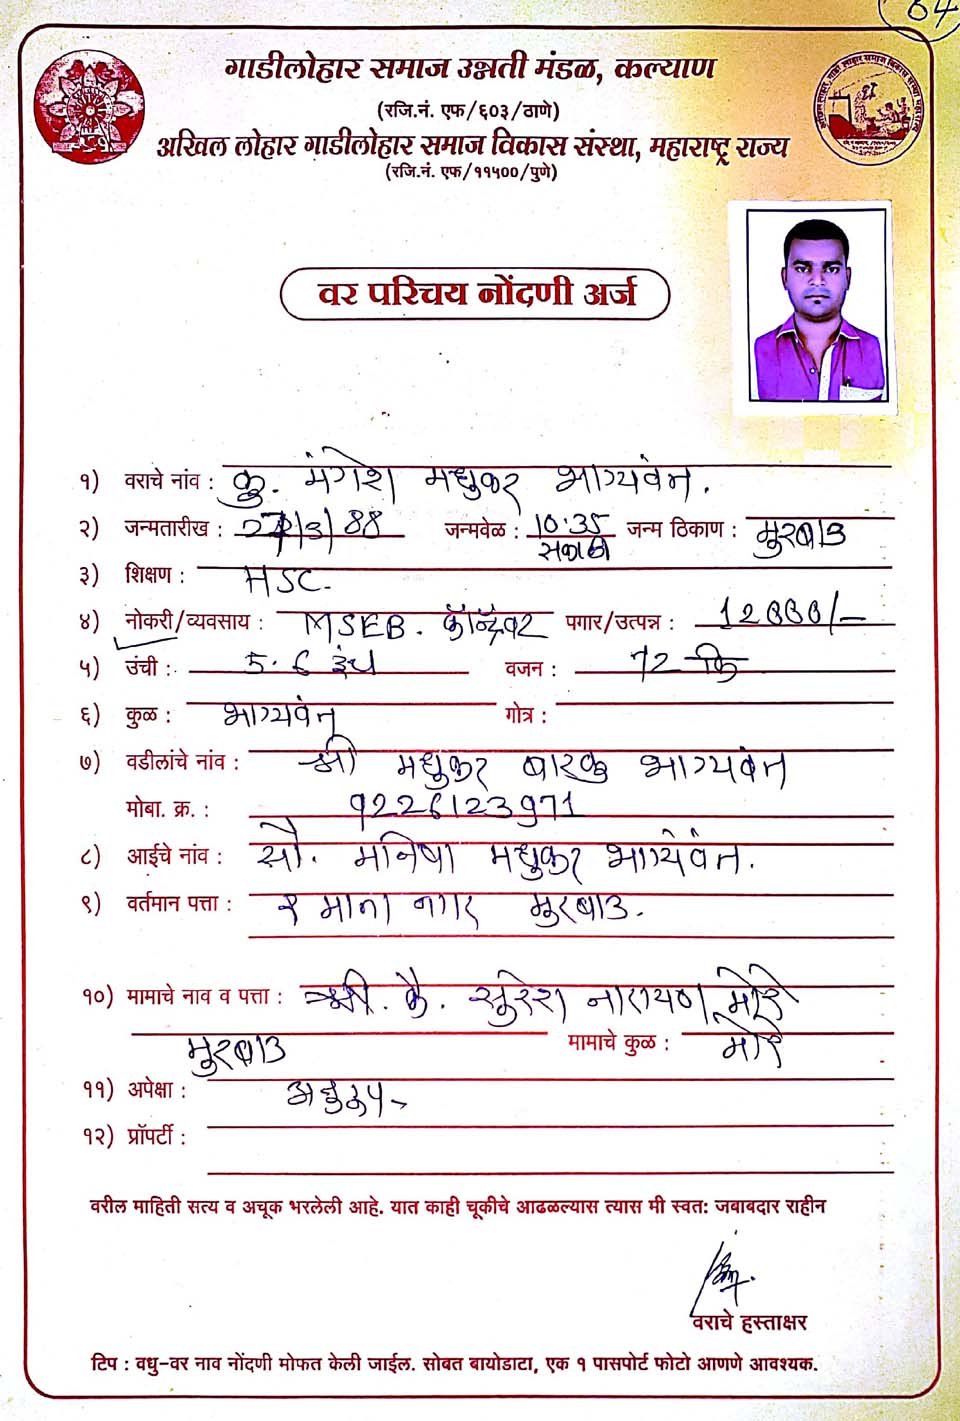 64
गाडीलोहार समाज उन्नती मंडळ, कल्याण
(रजि.नं. एफ/६०३/ठाणे)
अखिल लोहार गाडीलोहार समाज विकास संस्था, महाराष्ट्र राज्य
(रजि.नं. एफ/११५००/पुणे)
वर परिचय नोंदणी अर्ज
१) वराचे नांव : कु. मंगेश मधुकर भाग्यवंत.
२) जन्मतारीख : /3/88 जन्मवेळ : 10:35 सकाळी जन्म ठिकाण : मुरबाड
३) शिक्षण : HSC.
४) नोकरी/व्यवसाय : MSEB. पगार/उत्पन्न : 12000/-
५) उंची : 5.6 इंच वजन : 72 कि
६) कुळ : भाग्यवंत गोत्र :
७) वडीलांचे नांव : श्री मधुकर बारकु भाग्यवंत
मोबा. क्र. : 9226123971
८) आईचे नांव : सौ. मनिषा मधुकर भाग्येवंत.
९) वर्तमान पत्ता : नगर मुरबाड.
१०) मामाचे नाव व पत्ता : श्री. कै. सुरेश नारायण मोरे
मुरबाड मामाचे कुळ : मोरे
११) अपेक्षा : अनुरूप-
१२) प्रॉपर्टी :
वरील माहिती सत्य व अचूक भरलेली आहे. यात काही चूकीचे आढळल्यास त्यास मी स्वत: जबाबदार राहीन
वराचे हस्ताक्षर
टिप : वधु-वर नाव नोंदणी मोफत केली जाईल. सोबत बायोडाटा, एक १ पासपोर्ट फोटो आणणे आवश्यक.